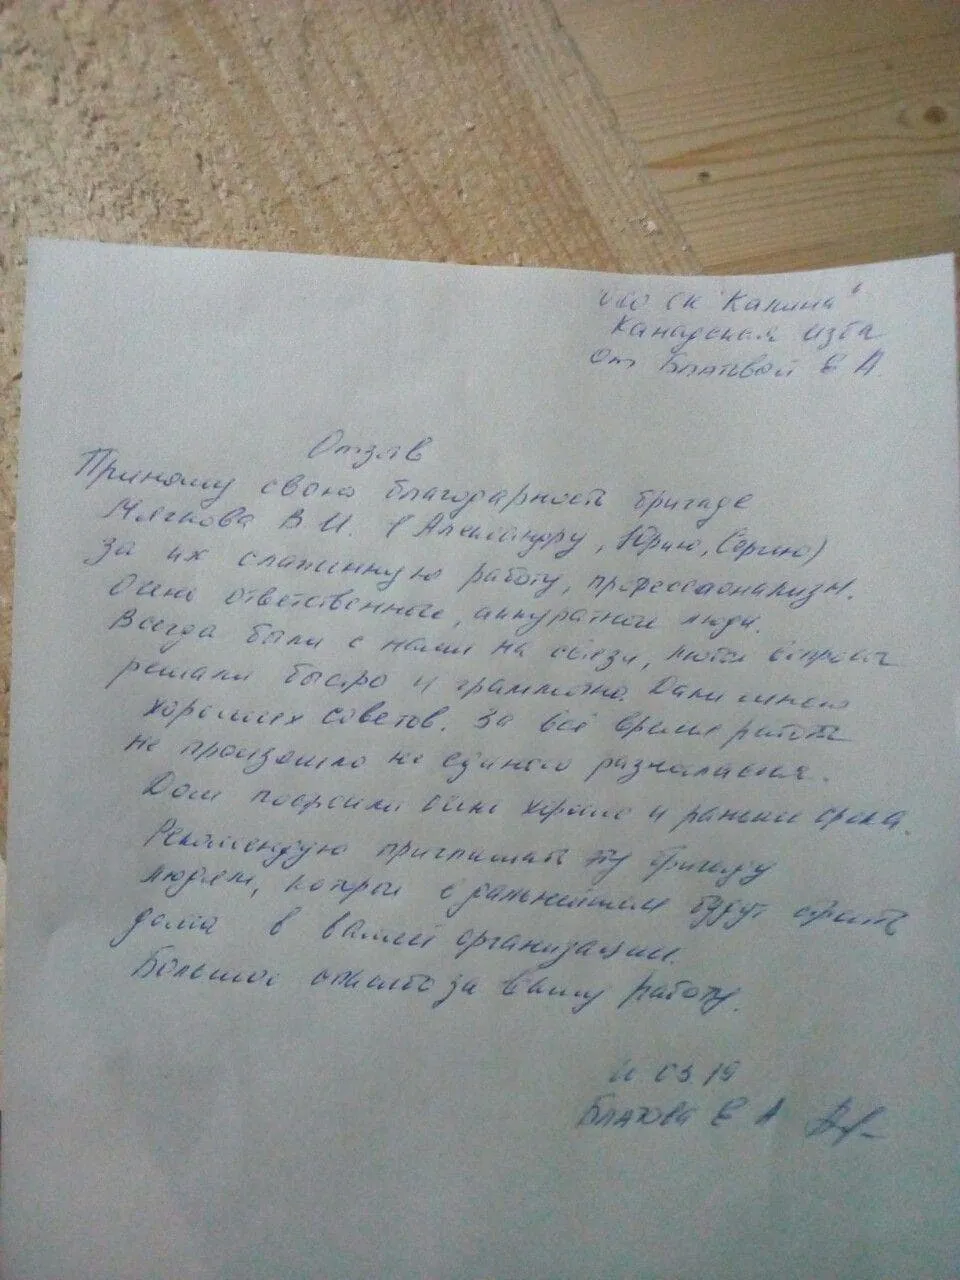 ООО СК "Калина"
Канадская изба
От Блатовой Е А.
Отзыв
Приношу свою благодарность бригаде
Мягкова В. И. (Александру, Юрию, Сергею)
за их слаженную работу, профессионализм.
Очень ответственные, аккуратные люди.
Всегда были с нами на связи, любые вопросы
решали быстро и грамотно. Дали много
хороших советов. За всё время работы
не произошло ни единого разногласия.
Дом построили очень хорошо и раньше срока.
Рекомендую приглашать эту бригаду
людям, которые в дальнейшем будут строить
дома в вашей организации.
Большое спасибо за вашу работу.
03.19
Е А